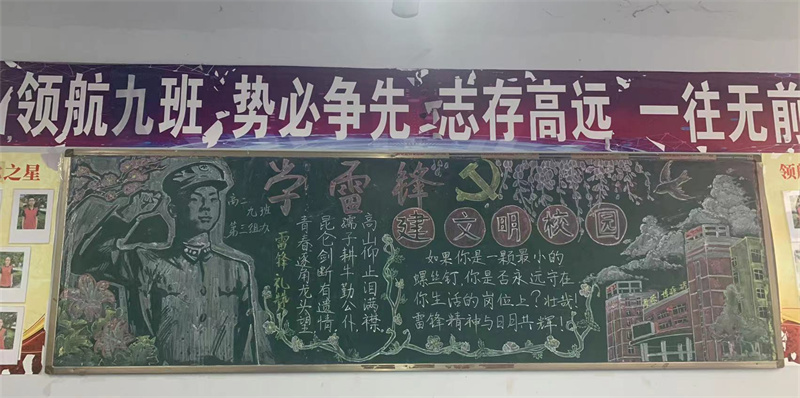 领航九班 势必争先 志存高远 一往无前
之星
领
学雷锋
建文明校园
高二
九班
第三组办
雷锋礼赞
高山仰止泪满襟
孺子耕牛勤公仆
昆仑剑断有遗情
青春逐角龙头望
如果你是一颗最小的
螺丝钉,你是否永远守在
你生活的岗位上?壮哉!
雷锋精神与日月共辉!